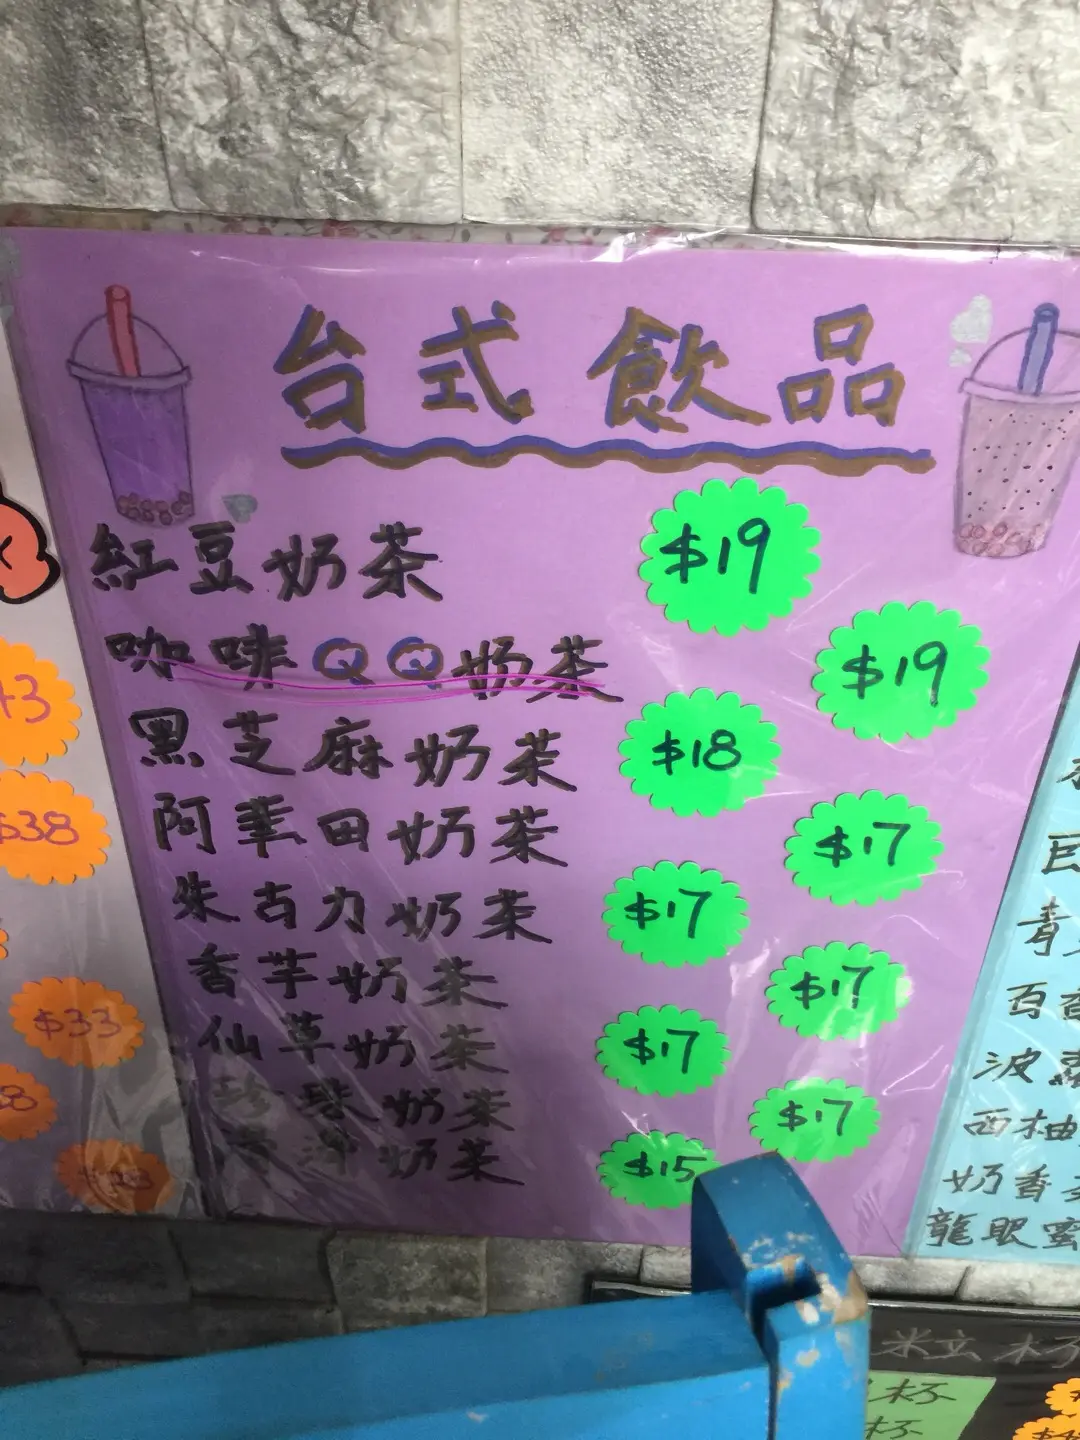 台式飲品
紅豆奶茶 $19
咖啡QQ奶茶 $19
黑芝麻奶茶 $18
阿華田奶茶 $17
朱古力奶茶 $17
香芋奶茶 $17
仙草奶茶 $17
珍珠奶茶 $17
奶茶 $15
$38
$33
青
百
波
西柚
奶香
龍眼蜜
杯
杯